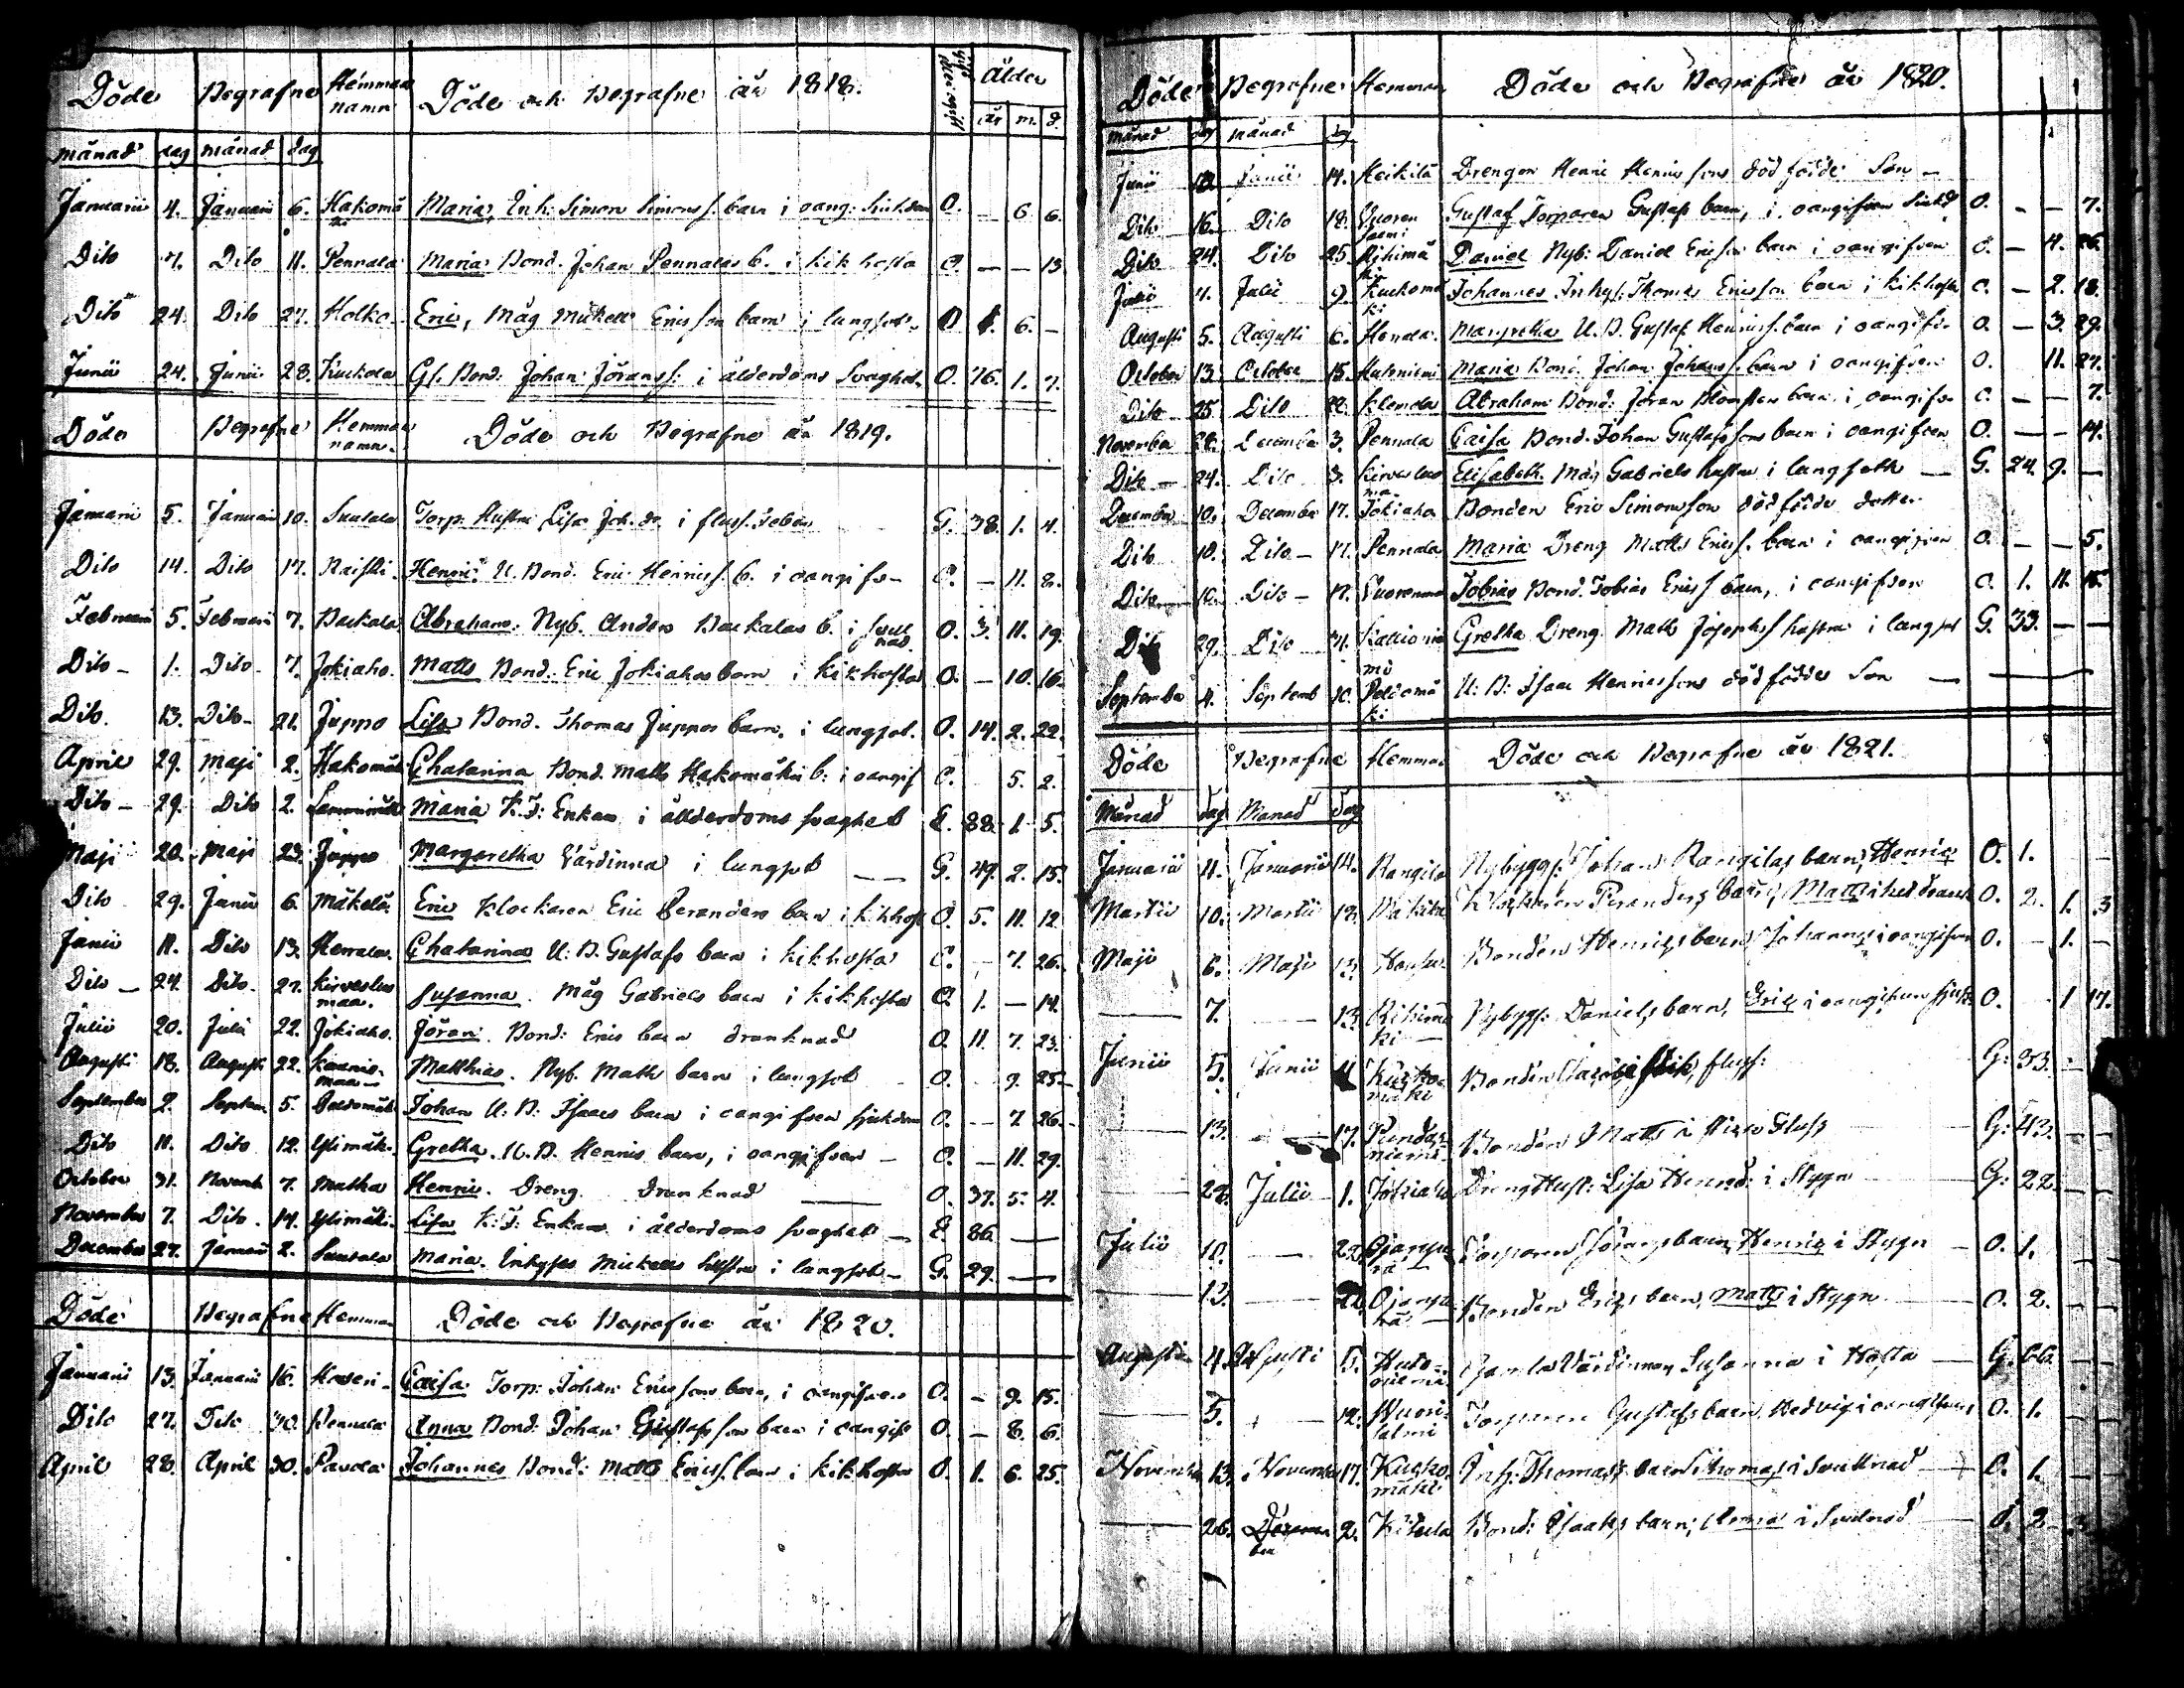 Döde Begrafne Hemmans namn Döde och Begrafne år 1818. Ålder
år m. d.
månad dag månad dag
Januarii 4. Januarii 6. Hakomä ki Maria, Inh. Simon Simonss. barn i oang. Siukdom O. — 6. 6.
Dito 7. Dito 11. Pennala Maria Bond. Johan Pennalas b. i kikhosta O. — — 13
Dito 24. Dito 27. Holko Eric, Måg Mickell Ericsson barn i lungsot O 1. 6. —
Junii 24. Junii 28. Kuckola Gl. Bond. Johan Jöranss. i ålderdoms Svaghet O. 76. 1. 7.
Döde Begrafne Hemmans namn. Döde och Begrafne år 1819.
Januarii 5. Januarii 10. Suutala Torp. Hustru Lisa Joh. dr i fluss. feber G. 38. 1. 4.
Dito 14. Dito 17. Raiski. Henric U. Bond. Eric Henricss. b. i oangifv— O. — 11. 8.
Februarii 5. Februarii 7. Backala Abraham. Nyb. Anders Backalas b. i svullnad O. 3. 11. 19.
Dito — 1. Dito — 7. Jokiaho. Matts Bond. Eric Jokiahos barn i kikhosta O. — 10. 16.
Dito. 13. Dito — 21. Juppo Lisa Bond. Thomas Juppos barn, i lungsot. O. 14. 2. 22.
April 29. Maji 2. Hakomäki Chatarina Bond. Matts Hakomäki b. i oangif O. 5. 2.
Dito — 29. Dito 2. Maria K. J: Enkan i ålderdoms svaghet E. 88. 1. 5.
Maji 20. Maji 23. Juppo Margaretha Värdinna i lungsot — G. 49. 2. 15.
Dito 29. Junii 6. Mäkelä Eric Klockaren Eric Peranders barn i kikhost O. 5. 11. 12
Junii 11. Dito 13. Herrala. Chatarina U. B. Gustafs barn i kikhosta O. — 7. 26.
Dito — 24. Dito. 27. Kirveslus maa. Susanna. Måg Gabriels barn i kikhosta O. 1. — 14.
Julii 20. Julii 22. Jokiaho. Jöran. Bond: Erics barn drunknad O. 11. 7. 23.
Augusti 18. Augusti 22. maa— Matthias. Nyb. Matts barn i lungsot — O. — 9. 25.
September 2. Septem. 5. Peldomäki Johan U. B. Isaacs barn i oangifven sjukdom O. — 7. 26.
Dito 11. Dito 12. Ylimäki. Gretha. U. B. Henrics barn, i oangifven — O. — 11. 29.
October 31. Novemb 7. Matka Henric. Dreng. drunknad — O. 37. 5. 4.
November 7. Dito. 14. Ylimäki Lisa K: J: Enkan i ålderdoms svaghet — E. 86. —
December 27. Januarii 2. Suutala Maria. Inhyses Mickells hustru i lungsot — G. 29. —
Döde Begrafne Hemman Döde och Begrafne år 1820.
Januarii 13. Januarii 16. Caisa Torp: Johan Ericssons barn, i oangifven O. — 9. 15.
Dito 27. Dito 30. Pennala Anna Bond. Johan Gustafsson barn i oangifv O. — 8. 6.
April 28. April 30. Pavola Johannes Bond: Matts Ericss. barn i kikhosta O. 1. 6. 25.
Döde Begrafne Hemman Döde och Begrafne år 1820.
månad dag månad dag
Junii 10. Junii 14. Heikilä Drengen Henric Henricssons dödfödde Son —
Dito 16. Dito 18. Vuoren salmi Gustaf Torparen Gustafs barn, i oangifven siukd O. — — 7.
Dito 24. Dito 25. Rihimä ki Daniel Nyb: Daniel Ericson barn i oangifven O. — 4. 26.
Julii 4. Julii 9. Kuckomä ki Johannes Inhys. Thomas Ericsson barn i kikhosta O. — 2. 18.
Augusti 5. Augusti 6. Margretha U. B. Gustaf Henricss. barn i oangifv O. — 3. 29.
October 13. October 15. Hutoniemi Maria Bond. Johan Johanss. barn i oangifven O. 11. 27.
Dito 25. Dito 29. Klemola Abraham Bond. Jöran barn i oangifv O. — — 7.
November 28. December 3. Pennala Caisa Bond. Johan Gustafssons barn i oangifven O. — — 14.
Dito — 24. Dito 3. Kirveslus ma Elisabeth. Måg Gabriels hustru i lungsoth — G. 24. 9. —
December 10. December 17. Jokiaho Bonden Eric Simonsson dödfödde dotter.
Dito 10. Dito — 17. Pennala Maria Dreng Matts Ericss. barn i oangifven O. — — 5.
Dito 10. Dito — 17. Tobias Bond. Tobias Ericss barn, i oangifven O. 1. 11. 15.
Dito 29. Dito 31. Gretha Dreng. Matts Josephss hustru i lungsot G. 33. — —
September 4. Septemb 10. Peldomä ki U: B: Isaac Henricssons dödfödde Son —
Döde Begrafne Hemman Döde och Begrafne år 1821.
Månad dag Månad dag
Januarii 11. Januarii 14. Rangila Nybygg: Johan Rangilas barn, Henric O. 1. —
Martii 10. Martii 18. Mäkilä Klockaren Peranders barn, Matts O. 2. 1. 3
Maji 6. Maji 13. Bonden Henrics barn Johannes i oangifven O. — 1. —
— 7. — 13. Rihimä ki — Nybygg: Daniels barn, Eric i oangifven sjukd O. — 1 17.
Junii 5. Junii 11 Kucko- mäki Bonden fluss: G: 33. —
— 13. — 17. Pundar- niemi Bonden Matts i fluss — G: 43. —
— 28. Julii 1. Jokiaho Dreng Hust: Lisa Henrsd: i Stygn — G: 22.
Julii 10. — 22. Ojanpe rä — Torparen Jörans barn, Henric i Stygn — O. 1.
— 13. — 22. Ojanpe rä — Bonden Erics barn, Matts i Stygn — O. 2.
Augusti 4. Augusti 5. Huto- niemi. Gamla Värdinnan Susanna i Hosta — G. 66.
— 5. — 12. Vuori- salmi Torparen Gustafs barn, Hedvig i oangifven O. 1.
November 13. November 17. Kucko- mäki Inh: Thomass barn Thomas i Svullnad — O. 1.
— 26. Decem- ber 2. Kitula Bond: Isaaks barn, Anna i Svullnad — O. 2.